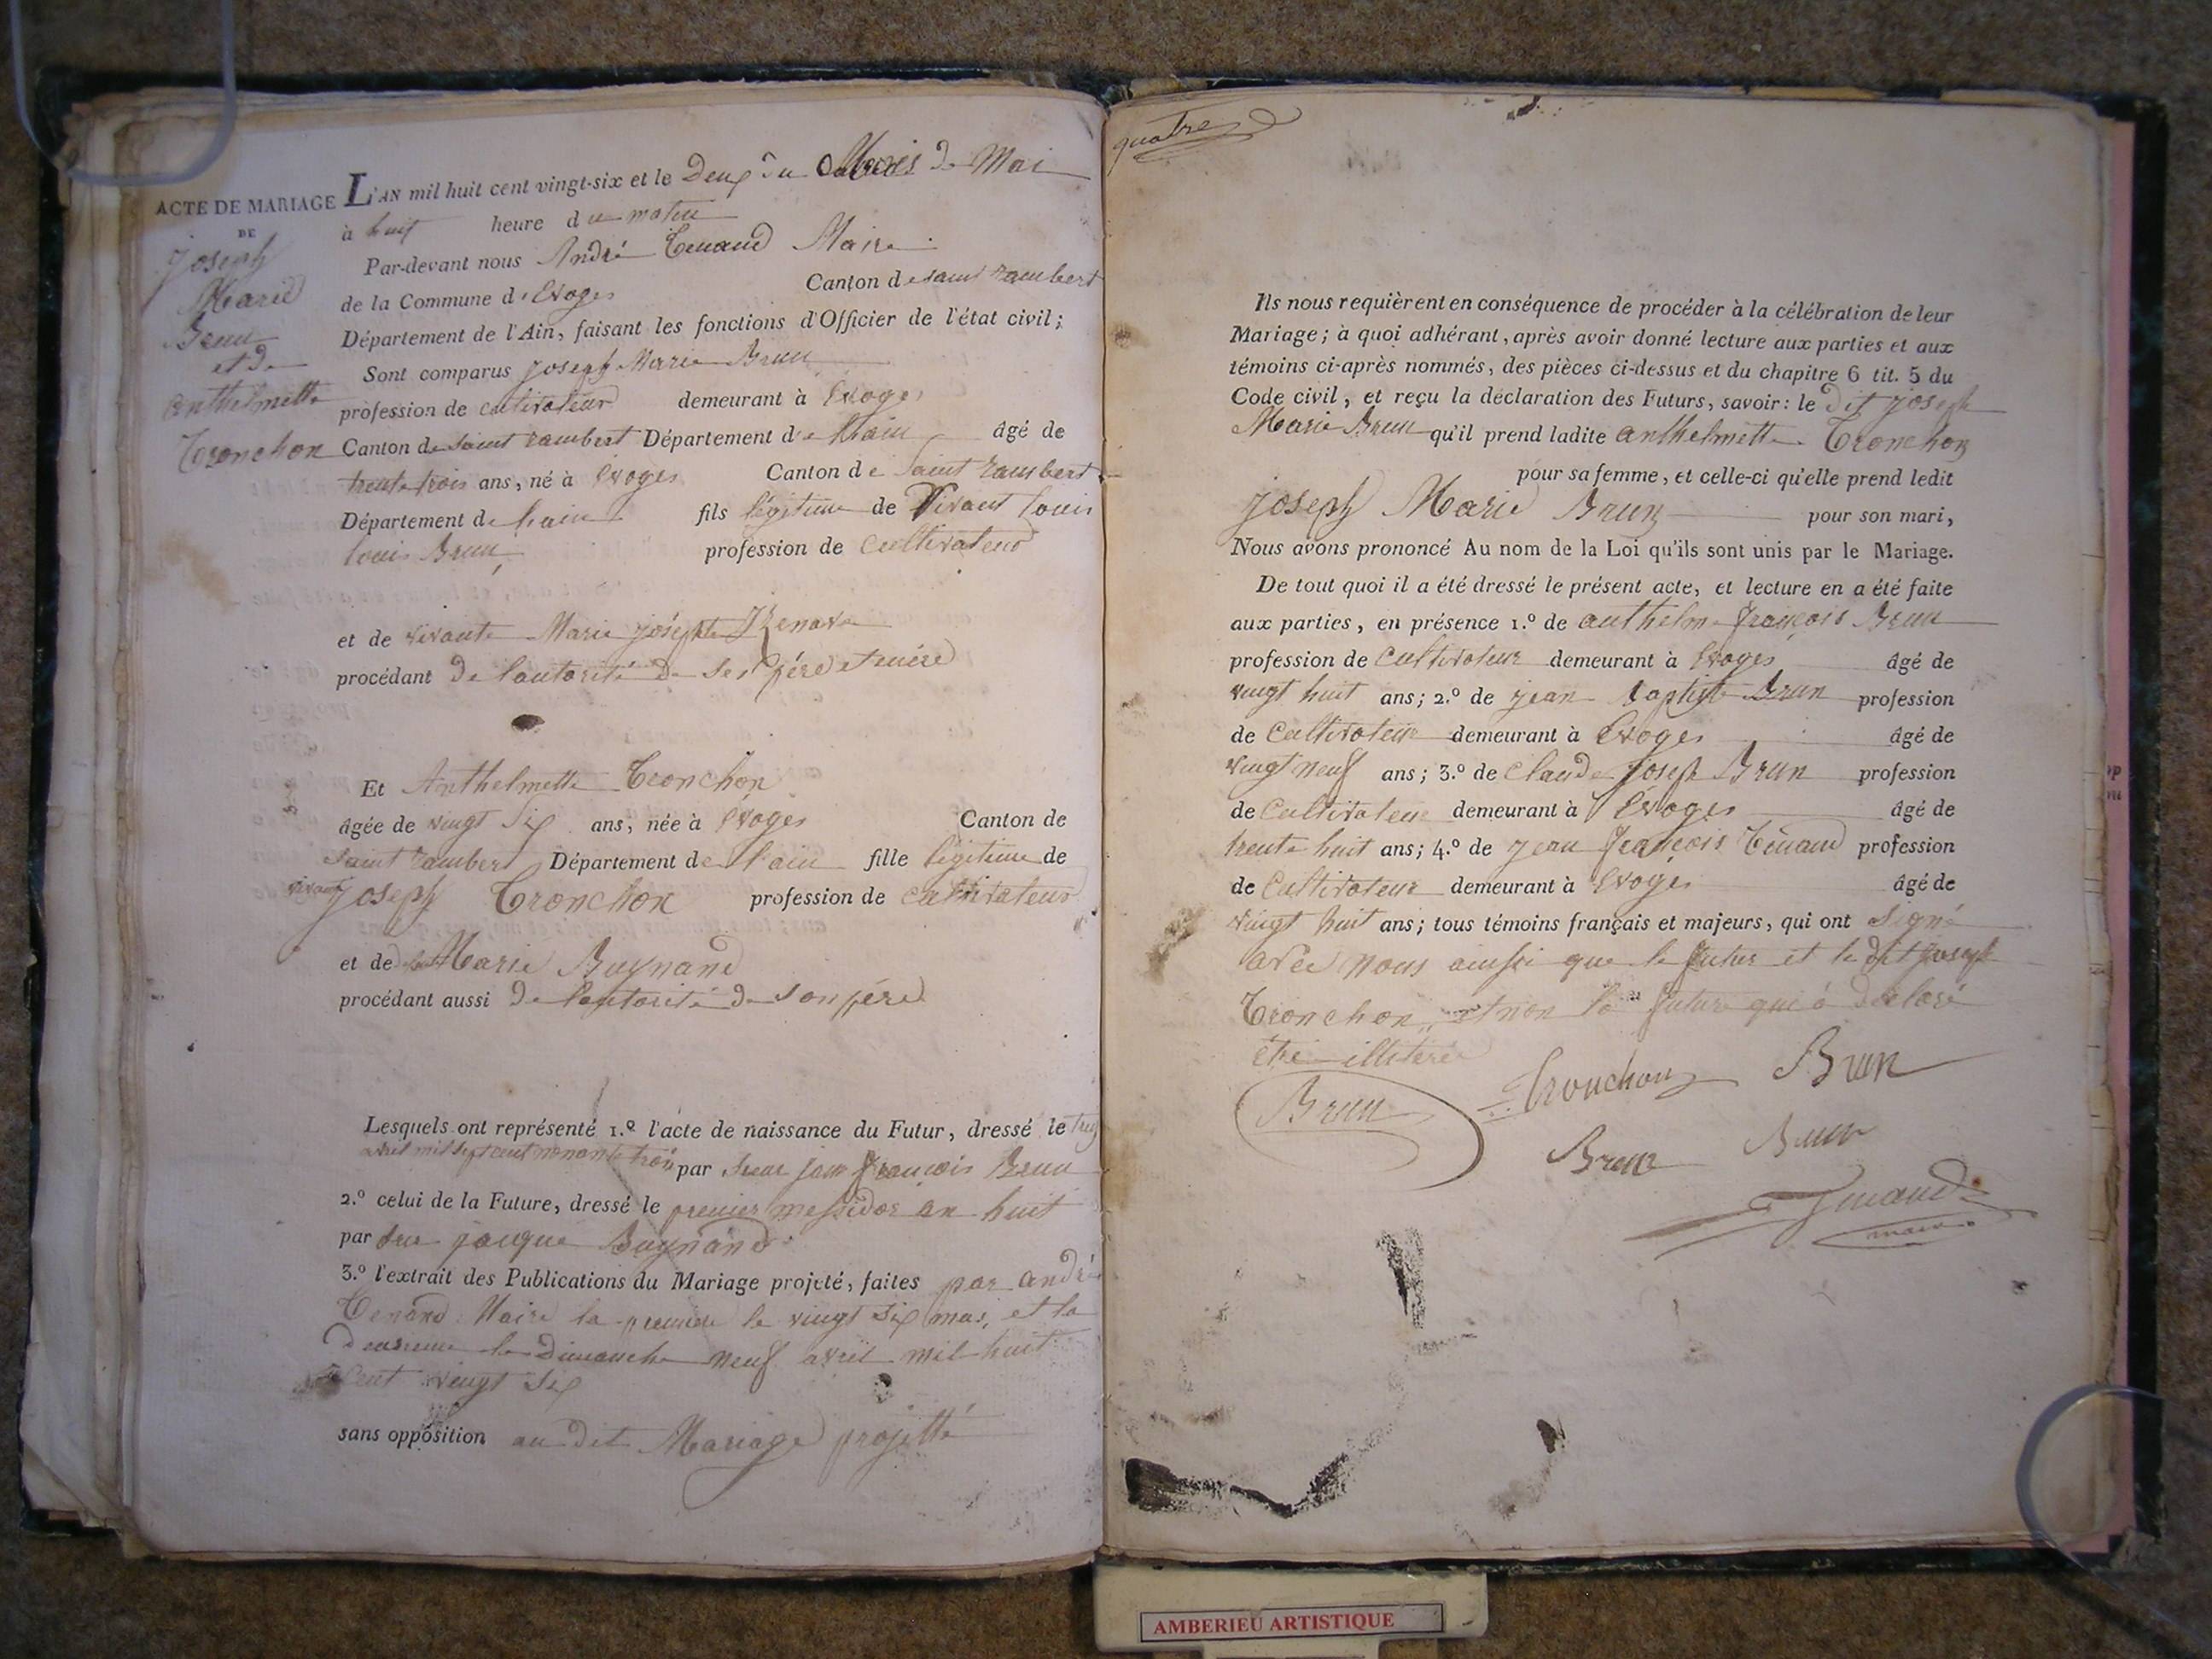 ACTE DE MARIAGE
DE
Joseph
Marie
Brun
et de
anthelmette
Tronchon
L'AN mil huit cent vingt-six et le Deux du Mois de Mai
à huit heure du matin
Par-devant nous André Tenand Maire
de la Commune d'Evoges Canton de saint rambert
Département de l'Ain, faisant les fonctions d'Officier de l'état civil;
Sont comparus joseph Marie Brun
profession de cultivateur demeurant à Evoges
Canton de saint rambert Département de l'ain âgé de
trente trois ans, né à Evoges Canton de Saint rambert
Département de l'ain fils légitime de Vivant louis
louis Brun profession de Cultivateur
et de vivante Marie josephte
procédant de l'autorité de ses père et mère
Et Anthelmette Tronchon
âgée de vingt six ans, née à Evoges Canton de
saint rambert Département de l'ain fille légitime de
vivant joseph Tronchon profession de cultivateur
et de Marie Buynand
procédant aussi de l'autorité de son père
Lesquels ont représenté 1.º l'acte de naissance du Futur, dressé le
avril mil sept cent nonante trois par jean françois Brun
2.º celui de la Future, dressé le premier messidor an huit
par jacque Buynand
3.º l'extrait des Publications du Mariage projeté, faites par andré
Tenand Maire la premiere le vingt six mars, et la
deuxieme le dimanche neuf avril mil huit
cent vingt six
sans opposition au dit Mariage projetté
quatre
Ils nous requièrent en conséquence de procéder à la célébration de leur
Mariage; à quoi adhérant, après avoir donné lecture aux parties et aux
témoins ci-après nommés, des pièces ci-dessus et du chapitre 6 tit. 5 du
Code civil, et reçu la déclaration des Futurs, savoir: le dit joseph
Marie Brun qu'il prend ladite anthelmette Tronchon
pour sa femme, et celle-ci qu'elle prend ledit
joseph Marie Brun pour son mari,
Nous avons prononcé Au nom de la Loi qu'ils sont unis par le Mariage.
De tout quoi il a été dressé le présent acte, et lecture en a été faite
aux parties, en présence 1.º de anthelme françois Brun
profession de Cultivateur demeurant à Evoges âgé de
vingt huit ans; 2.º de jean Baptiste Brun profession
de Cultivateur demeurant à Evoges âgé de
vingt neuf ans; 3.º de Claude joseph Brun profession
de Cultivateur demeurant à Evoges âgé de
trente huit ans; 4.º de jean françois Tenand profession
de Cultivateur demeurant à Evoges âgé de
vingt huit ans; tous témoins français et majeurs, qui ont signé
avec nous ainsi que le futur et le dit joseph
Tronchon et non la future qui a déclaré
être illiterée
Brun Tronchon Brun
Brun Brun
Tenand
maire
AMBERIEU ARTISTIQUE